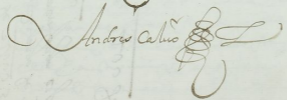 Andres Calvo